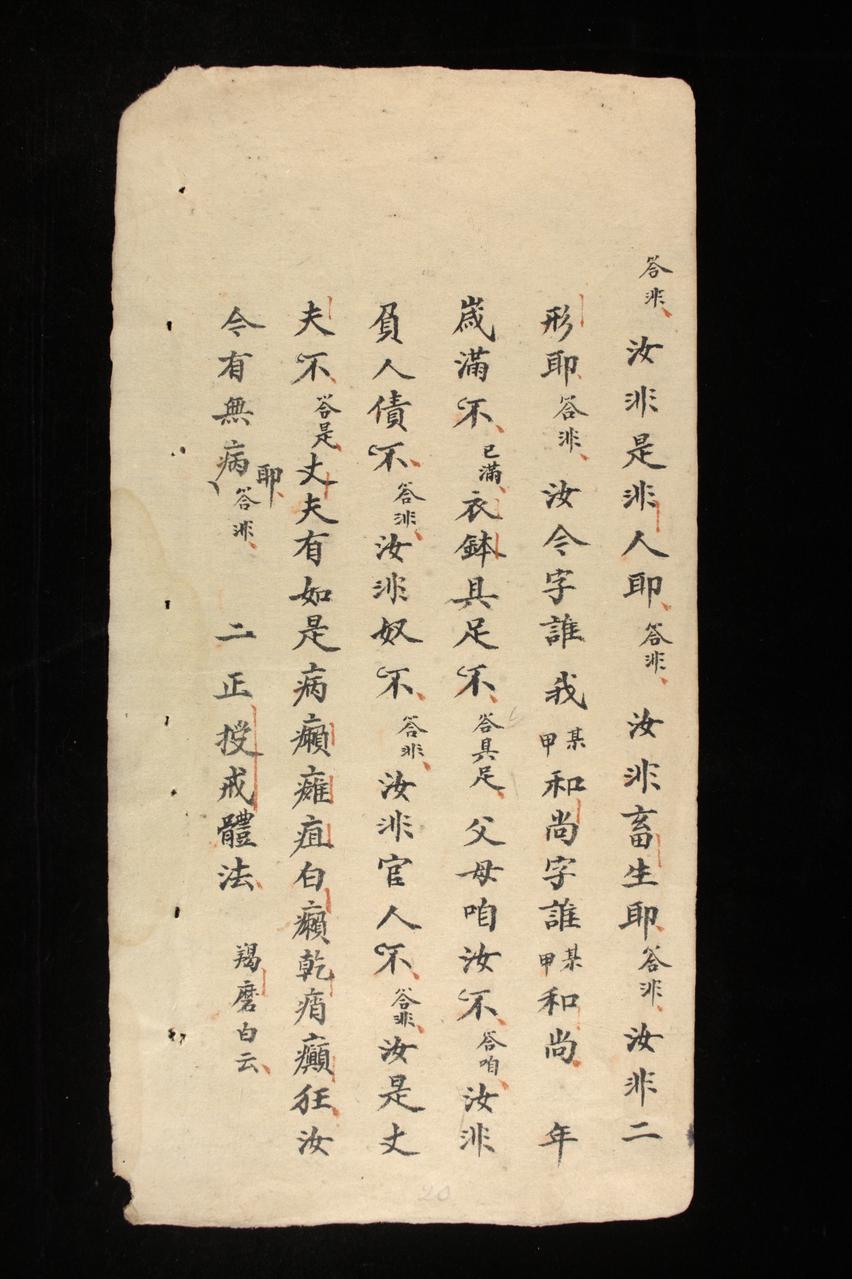 答非汝非是非人耶答非汝非畜生耶答非汝非二
形耶答非汝今字誰我某甲和尚字誰某甲和尚年
歲滿不已滿衣鉢具足不答具足父母咱汝不答咱汝非
負人債不答非汝非奴不答非汝非官人不答非汝是丈
夫不答是丈夫有如是病癩癰疽白癩乾痟癲狂汝
今有無病耶答非二正授戒體法羯磨白云
20